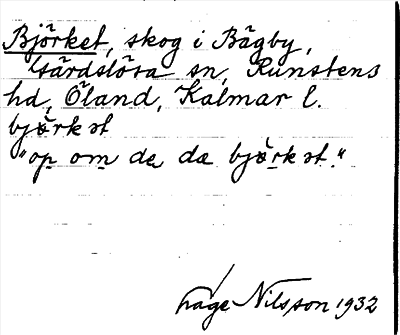 Björket, skog i Bägby,
Gärdslösa sn, Runstens
hd, Öland, Kalmar l.
björkət
"op om de dæ björkət."
Åage Nilsson 1932